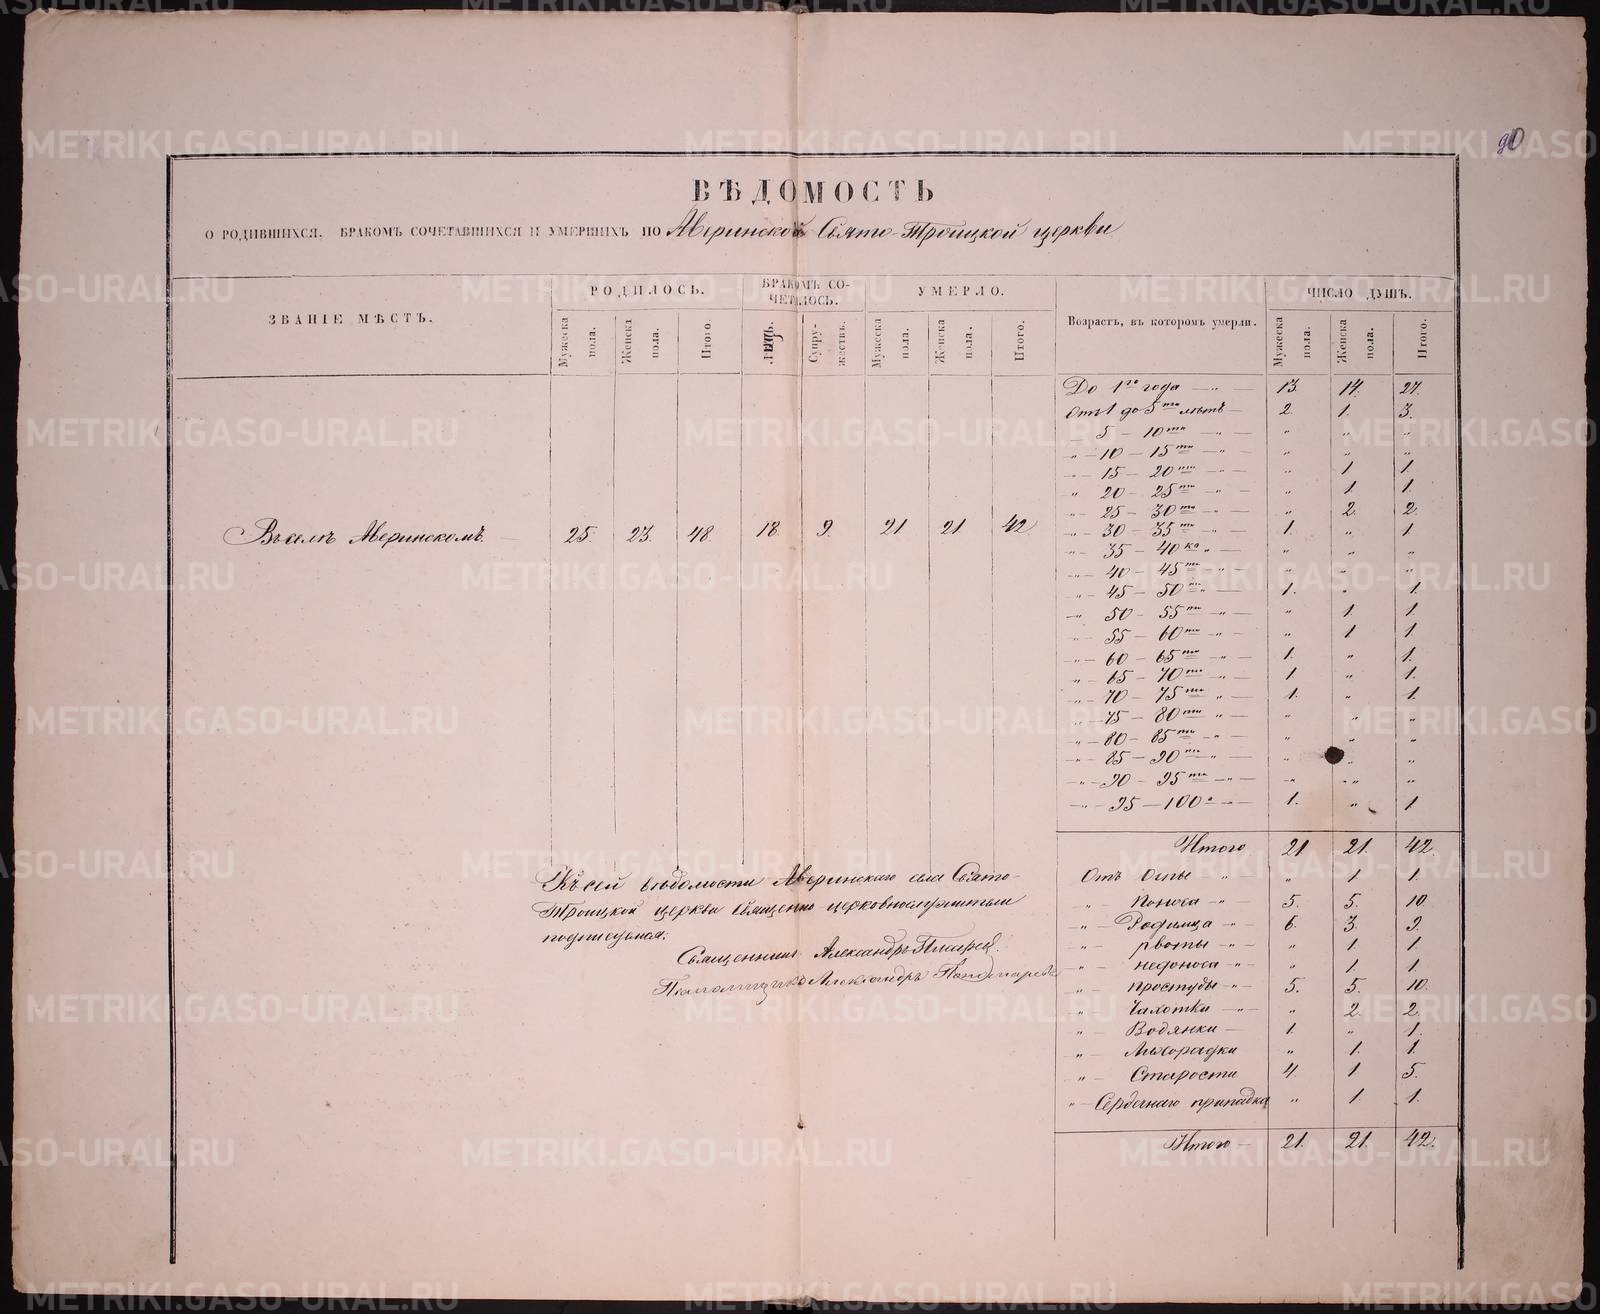 90
ВѢДОМОСТЬ
О РОДИВШИХСЯ, БРАКОМЪ СОЧЕТАВШИХСЯ И УМЕРШИХЪ ПО Аверинской Свято-Троицкой церкви
ЗВАНІЕ МѢСТЪ. РОДИЛОСЬ. БРАКОМЪ СОЧЕТАЛОСЬ. УМЕРЛО. Возрастъ, въ которомъ умерли. ЧИСЛО ДУШЪ.
Мужеска пола. Женска пола. Итого. Супружествъ. Мужеска пола. Женска пола. Итого. Мужеска пола. Женска пола. Итого.
Въ селѣ Аверинскомъ 25. 23. 48. 18. 9. 21 21. 42
До 1го года — „ — 13. 14. 27.
Отъ 1 до 5ти лѣтъ — 2. 1. 3.
5 — 10ти — „ — „ „ „
„ — 10 — 15ти — „ — „ „ „
„ — 15 — 20ти — „ — „ 1 1.
„ 20 — 25ти — „ „ 1. 1.
„ — 25 — 30ти — „ — „ 2. 2.
„ — 30 — 35ти — „ — 1. „ 1
„ — 35 — 40ка „ — „ „ „
„ — 40 — 45ти — „ — „ „ „
„ — 45 — 50ти „ — 1. „ 1.
„ 50 — 55ти — „ — „ 1. 1.
„ — 55 — 60ти — „ — „ 1 1.
„ — 60 — 65ти — „ — 1. „ 1.
„ — 65 — 70ти — „ — 1. „ 1.
„ — 70 — 75ти „ — 1. „ 1.
„ — 75 — 80ти „ — „ „ „
„ — 80 — 85ти — „ — „ „ „
„ — 85 — 90ти — „ — „ „ „
„ — 90 — 95ти — „ — „ „ „
„ — 95 — 100а — „ — 1. „ 1
Итого 21 21. 42
Отъ Оспы „ „ 1 1.
„ Поноса — „ 5. 5. 10.
„ — Родимца — „ 6. 3. 9.
„ — рвоты — „ — „ 1 1.
„ недоноса — „ — „ 1. 1.
„ — простуды — „ — 5. 5. 10.
„ Чахотки — „ — „ 2. 2.
„ — Водянки — 1. „ 1.
„ — Лихорадки „ 1. 1.
„ — Старости 4. 1 5.
„ — Сердечнаго припадка „ 1. 1.
Итого — 21. 21. 42.
Къ сей вѣдомости Аверинскаго села Свято-
Троицкой церкви священно церковнослужители
подписуемся:
Священникъ Александръ
Псаломщикъ Александръ
METRIKI.GASO-URAL.RU